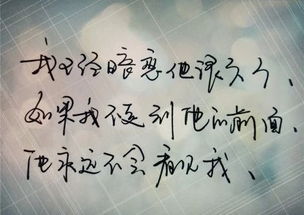 我已经暗恋他很久了、
如果我不走到他的前面、
他永远不会看见我、